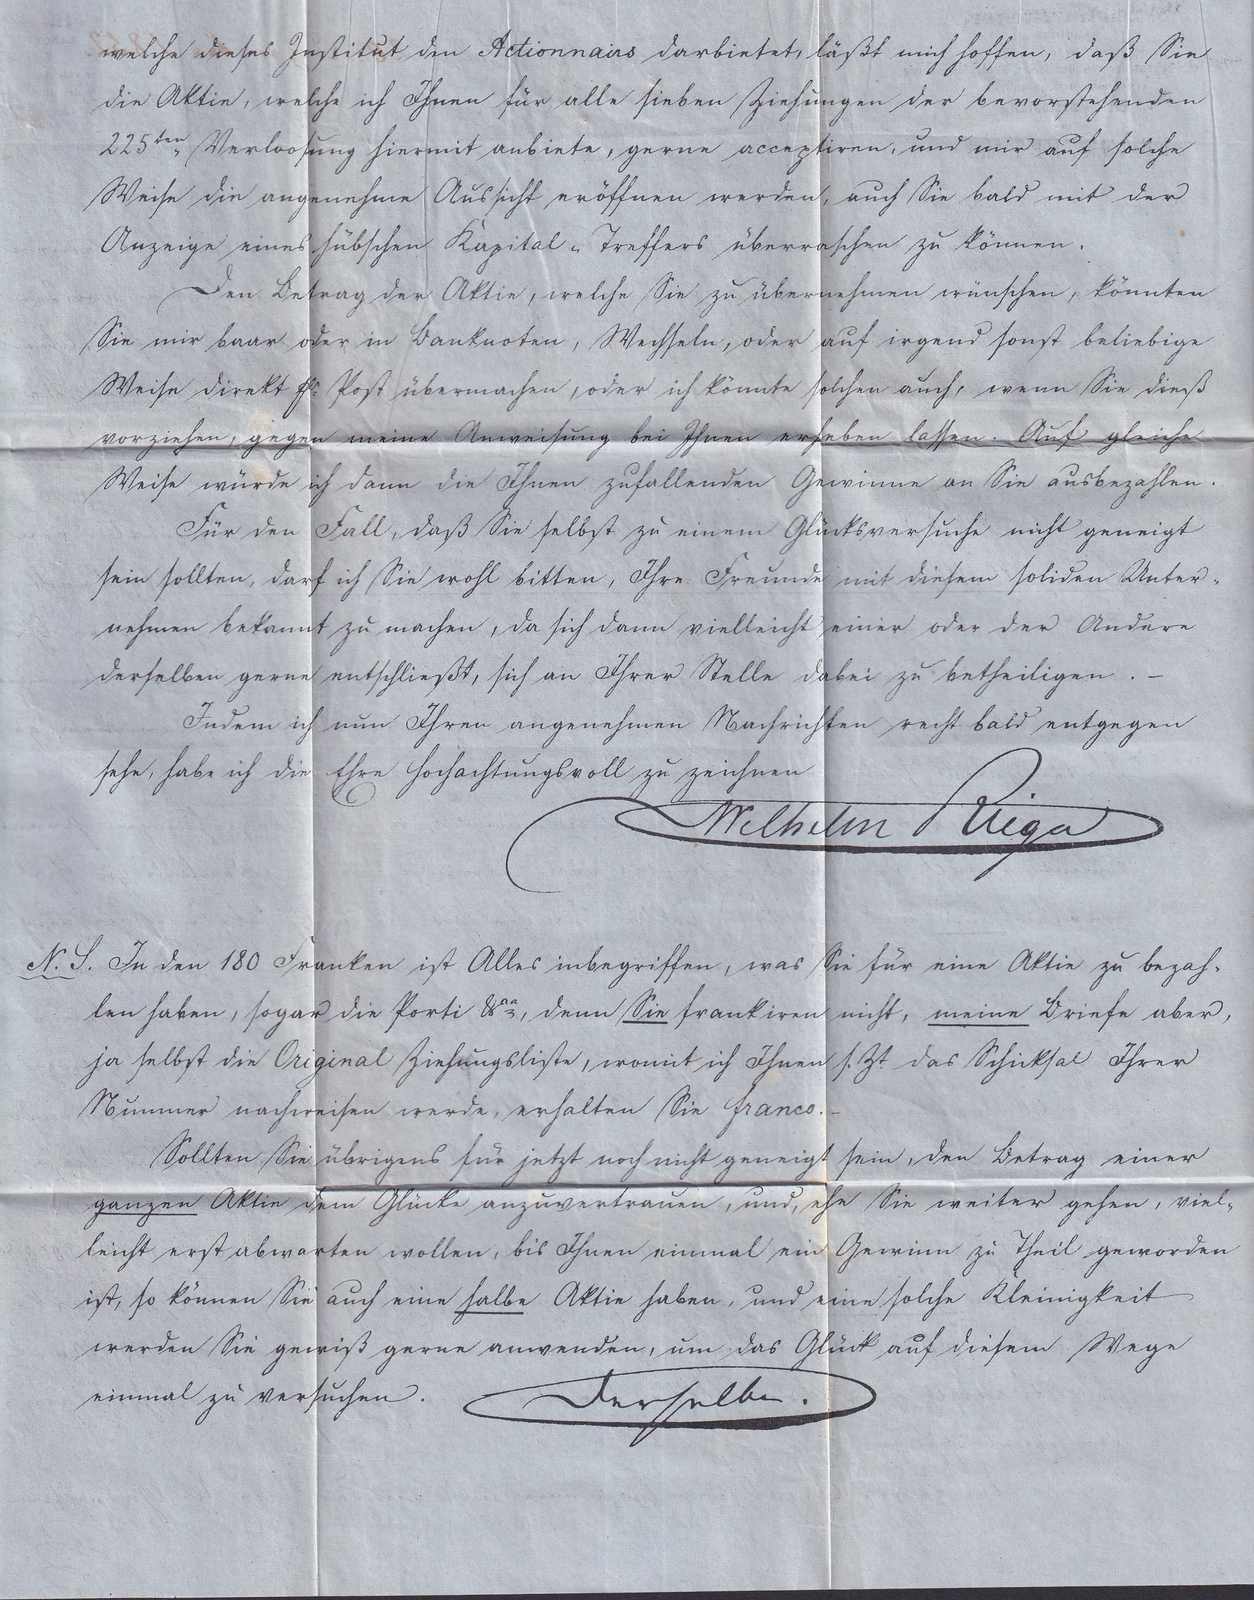 welche dieses Institut den Actionnairs darbietet, läßt mich hoffen, daß Sie
die Aktie, welche ich Ihnen für alle sieben Ziehungen der bevorstehenden
225ten Verloosung hiermit anbiete, gerne acceptiren, und mir auf solche
Weise die angenehme Aussicht eröffnen werden, auch Sie bald mit der
Anzeige eines hübschen Kapital-Treffers überraschen zu können.
Den Betrag der Aktie, welche Sie zu übernehmen wünschen, könnten
Sie mir baar oder in Banknoten, Wechseln, oder auf irgend sonst beliebige
Weise direkt pr. Post übermachen, oder ich könnte solchen auch, wenn Sie dieß
vorziehen, gegen meine Anweisung bei Ihnen erheben lassen. Auf gleiche
Weise würde ich dann die Ihnen zufallenden Gewinne an Sie ausbezahlen.
Für den Fall, daß Sie selbst zu einem Glücksversuche nicht geneigt
sein sollten, darf ich Sie wohl bitten, Ihre Freunde mit diesem soliden Unter-
nehmen bekannt zu machen, da sich dann vielleicht einer oder der Andere
derselben gerne entschließt, sich an Ihrer Stelle dabei zu betheiligen. –
Indem ich nun Ihren angenehmen Nachrichten recht bald entgegen
sehe, habe ich die Ehre hochachtungsvoll zu zeichnen
Wilhelm Rüga
N. S. In den 180 Franken ist Alles inbegriffen, was Sie für eine Aktie zu bezah-
len haben, sogar die Porti &ca, denn Sie frankiren nicht, meine Briefe aber,
ja selbst die Original Ziehungsliste, womit ich Ihnen s. Zt. das Schicksal Ihrer
Nummer nachweisen werde, erhalten Sie franco. –
Sollten Sie übrigens für jetzt noch nicht geneigt sein, den Betrag einer
ganzen Aktie dem Glücke anzuvertrauen, und, ehe Sie weiter gehen, viel-
leicht erst abwarten wollen, bis Ihnen einmal ein Gewinn zu Theil geworden
ist, so können Sie auch eine halbe Aktie haben, und eine solche Kleinigkeit
werden Sie gewiß gerne anwenden, um das Glück auf diesem Wege
einmal zu versuchen.
Derselbe.